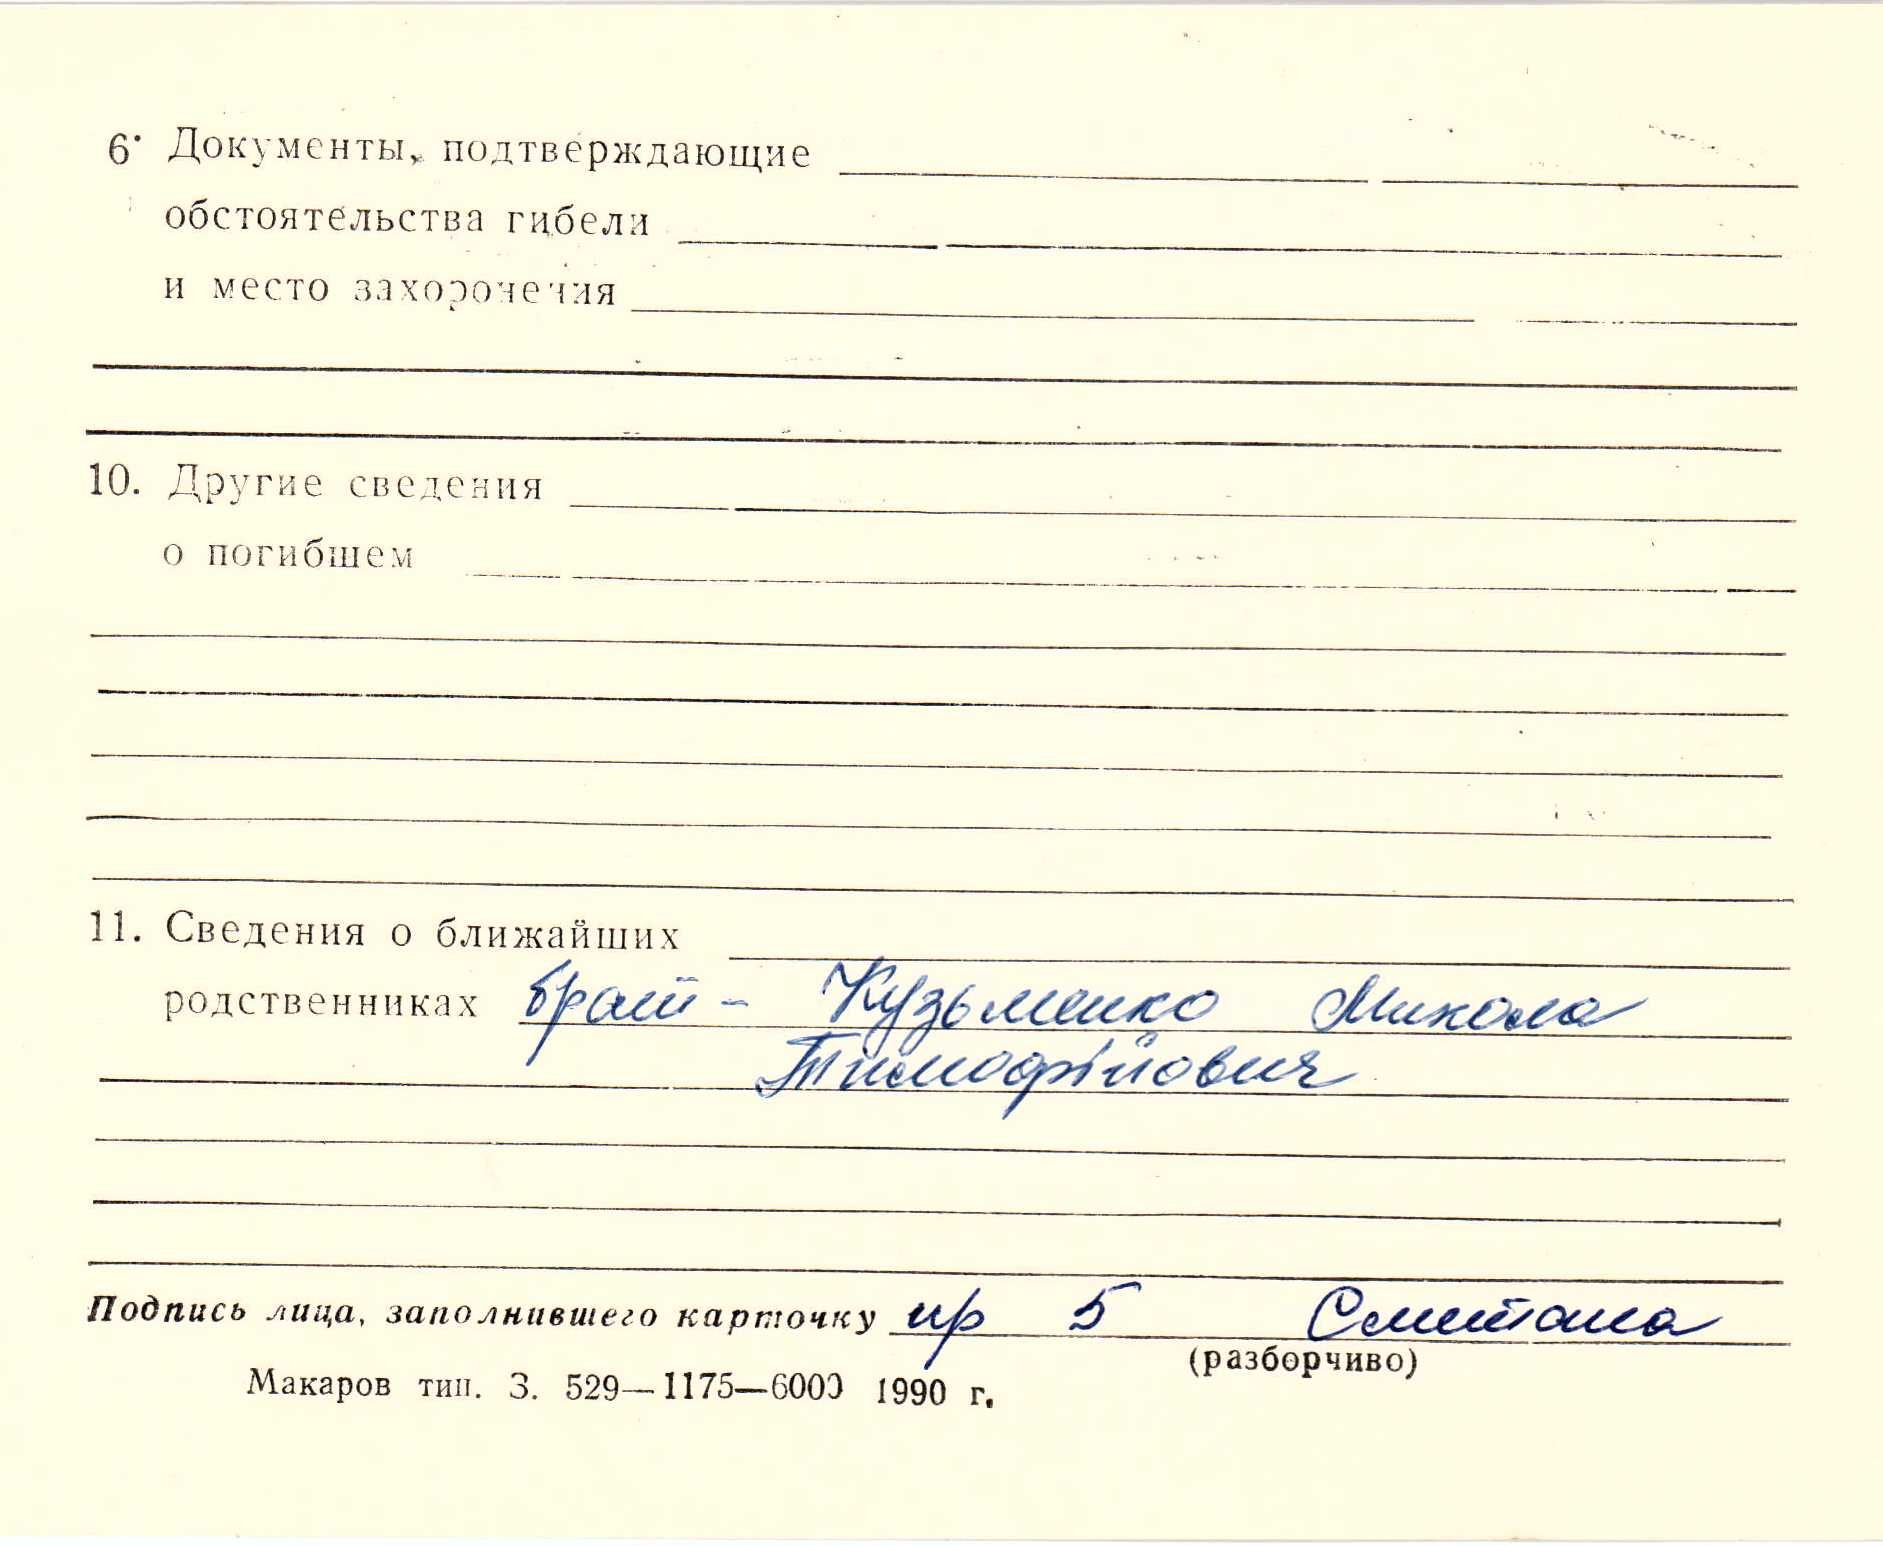 6. Документы, подтверждающие
обстоятельства гибели
и место захоронения
10. Другие сведения
о погибшем
11. Сведения о ближайших
родственниках брат - Кузьменко Микола
Тимофійович
Подпись лица, заполнившего карточку пр 5 Сметана
(разборчиво)
Макаров тип. З. 529—1175—6000 1990 г.